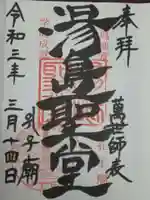 奉拜
萬世師表
湯島聖堂
孔子廟
令和三年
三月十四日